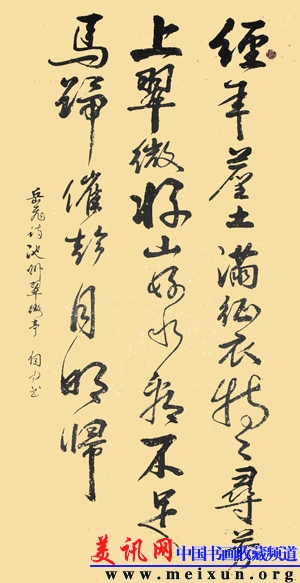 經年塵土滿征衣特々尋芳
上翠微好山好水看不足
馬蹄催趁月明歸
岳飛詩池州翠微亭 书
美讯网 中国书画收藏频道
www.meixun.org